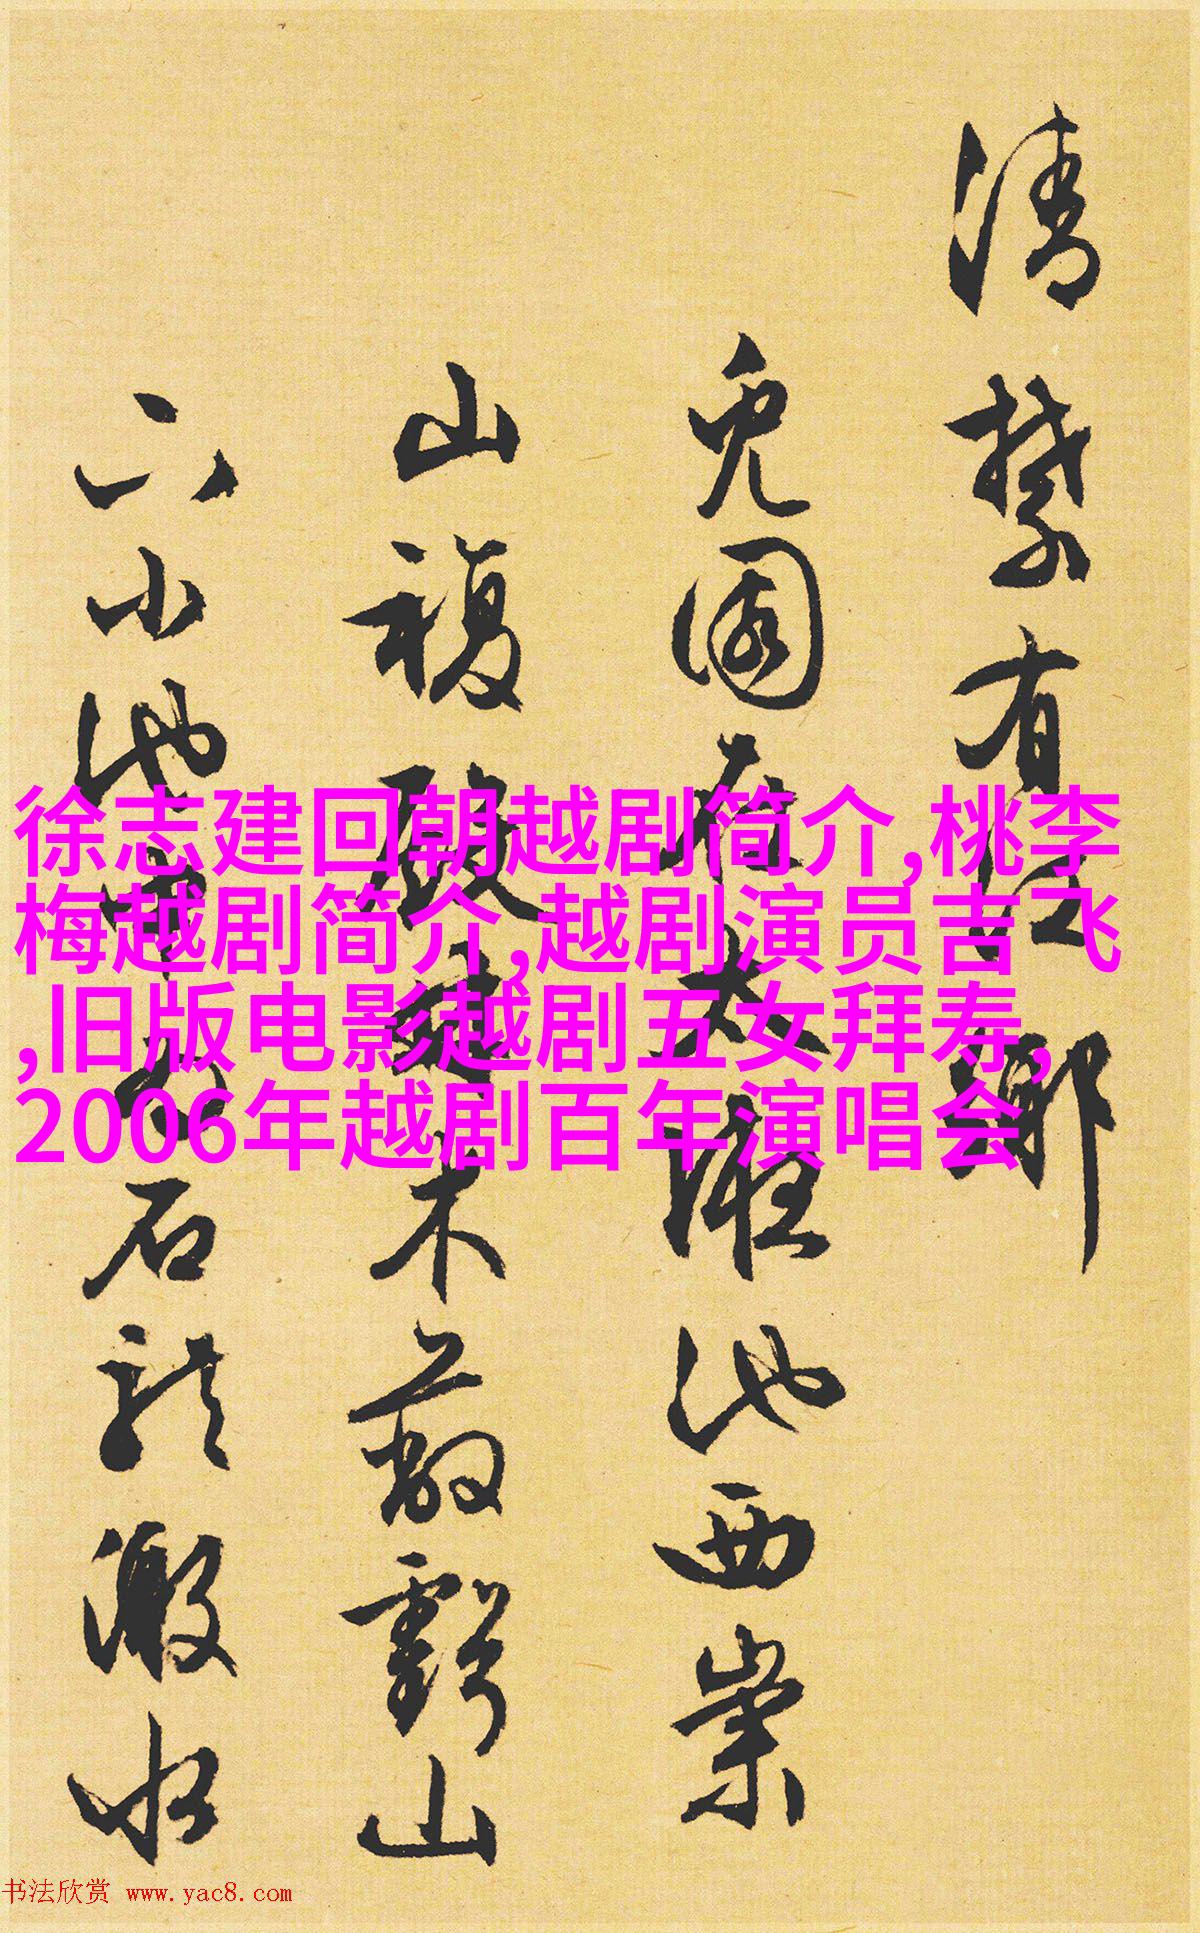 清禁有江鄉
兔園在太液池西崇
山複殿林木蔚翳山
下小池中二石龍激水
徐志建回朝越剧简介,桃李
梅越剧简介,越剧演员吉飞
,旧版电影越剧五女拜寿,
2006年越剧百年演唱会
书法欣赏 www.yac8.com